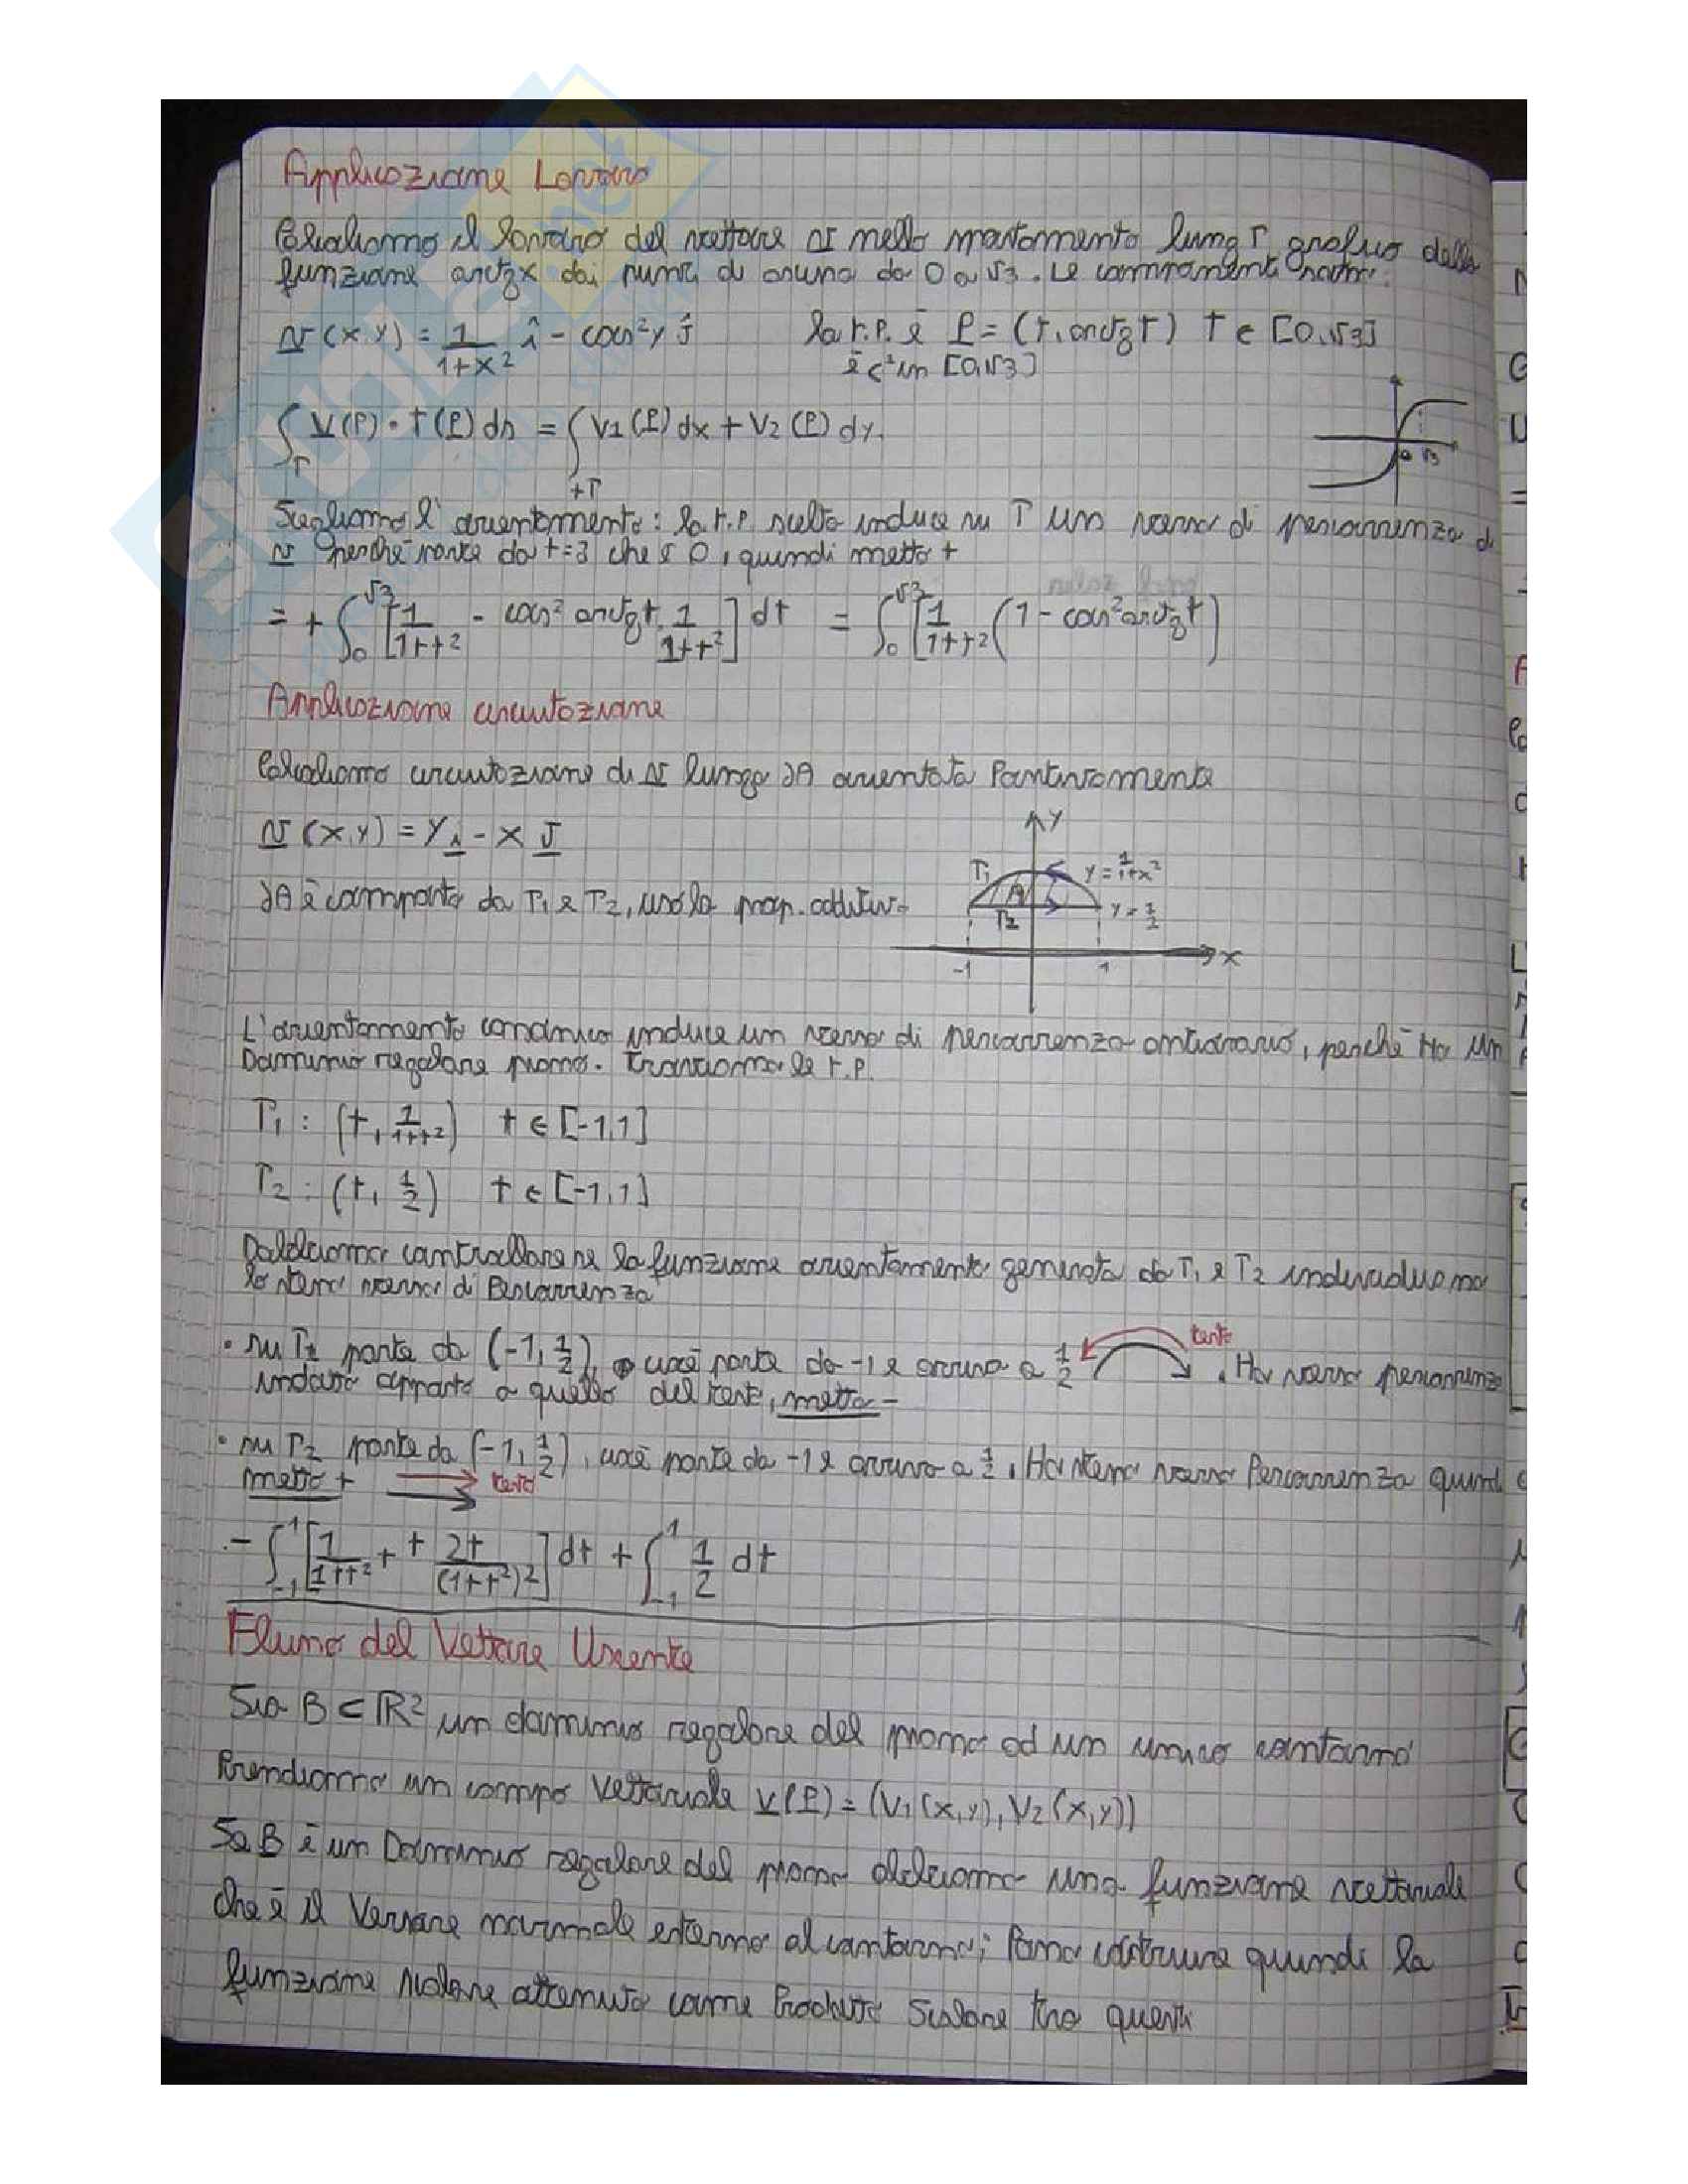 Applicazione Lavoro
Calcoliamo il lavoro del vettore v nello spostamento lungo Γ grafico della
funzione arctgx dai punti di ascissa da 0 a √3. Le componenti sono:
v(x,y) = 1/(1+x²) î - cos²y ĵ   la r.p. è P = (t, arctgt) t ∈ [0,√3]
è c¹ in [0,√3]
∫Γ v(P)·t(P) ds = ∫+Γ V1(P)dx + V2(P)dy.
0 √3
Scegliamo l'orientamento: la r.p. scelta induce su Γ un verso di percorrenza di
v perché parte da t=3 che è 0, quindi metto +
= + ∫₀^√3 [1/(1+t²) - cos² arctgt · 1/(1+t²)] dt = ∫₀^√3 [1/(1+t²) (1 - cos² arctgt)
Applicazione circuitazione
Calcoliamo circuitazione di v lungo ∂A orientata Positivamente
v(x,y) = y i - x j
∂A è composta da Γ1 e Γ2, uso la prop. additiva
y
Γ1 A y = 1/(1+x²)
Γ2 y = 1/2
-1 1 x
L'orientamento canonico induce un verso di percorrenza antiorario, perché ho un
Dominio regolare piano. Troviamo le r.p.
Γ1 : (t, 1/(1+t²)) t ∈ [-1,1]
Γ2 : (t, 1/2) t ∈ [-1,1]
Dobbiamo controllare se la funzione orientamento generata da Γ1 e Γ2 individuano
lo stesso verso di Percorrenza
• su Γ1 parte da (-1, 1/2), cioè parte da -1 e arriva a 1/2 testo . Ho verso percorrenza
indotto opposto a quello del testo, metto -
• su Γ2 parte da (-1, 1/2), cioè parte da -1 e arriva a 1/2. Ho stesso verso Percorrenza quindi
metto + testo
- ∫₋₁¹ [1/(1+t²) + t 2t/(1+t²)²] dt + ∫₋₁¹ 1/2 dt
Flusso del Vettore Uscente
Sia B ⊂ ℝ² un dominio regolare del piano ad un unico contorno
Prendiamo un campo vettoriale v(P) = (V1(x,y), V2(x,y))
Se B è un Dominio regolare del piano abbiamo una funzione vettoriale
che è il Versore normale esterno al contorno; Posso costruire quindi la
funzione scalare ottenuta come Prodotto Scalare tra questi